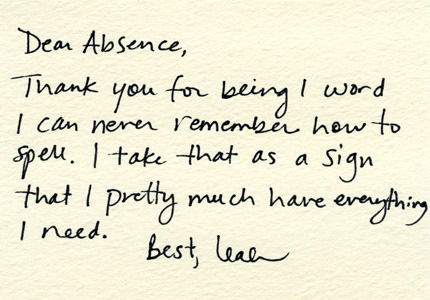 Dear Absence,
Thank you for being 1 word
I can never remember how to
spell. I take that as a sign
that I pretty much have everything
I need.
Best, Leah